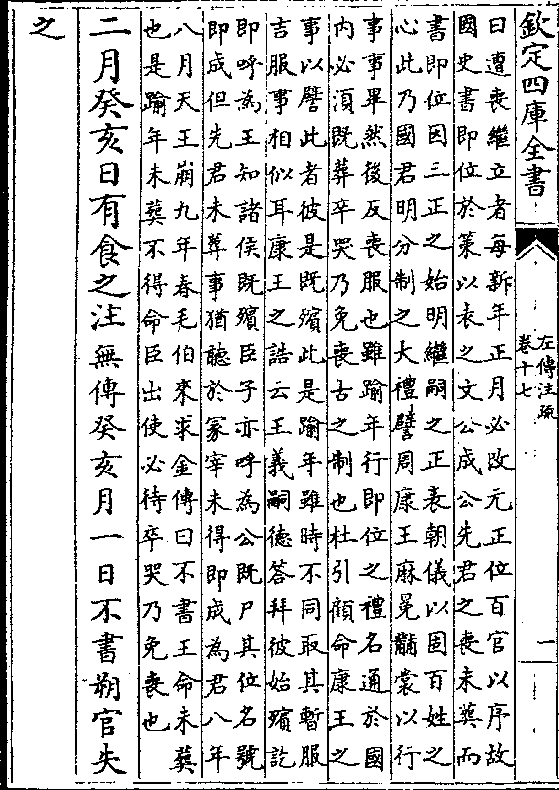 欽定四庫全書
左傳注疏
卷十七
一
曰遭喪繼立者每新年正月必改元正位百官以序故
國史書即位於策以表之文公成公先君之喪未葬而
書即位因三正之始明繼嗣之正表朝儀以固百姓之
心此乃國君明分制之大禮譬周康王麻冕黼裳以行
事事畢然後反喪服也雖踰年行即位之禮名通於國
內必須既葬卒哭乃免喪古之制也杜引顧命康王之
事以譬此者彼是既殯此是踰年雖時不同取其暫服
吉服事相似耳康王之誥云王義嗣德答拜彼始殯訖
即呼為王知諸侯既殯臣子亦呼為公既尸其位名號
即成但先君未葬事猶聽於冢宰未得即成為君八年
八月天王崩九年春毛伯來求金傳曰不書王命未葬
也是踰年未葬不得命臣出使必待卒哭乃免喪也
二月癸亥日有食之注無傳癸亥月一日不書朔官失
之